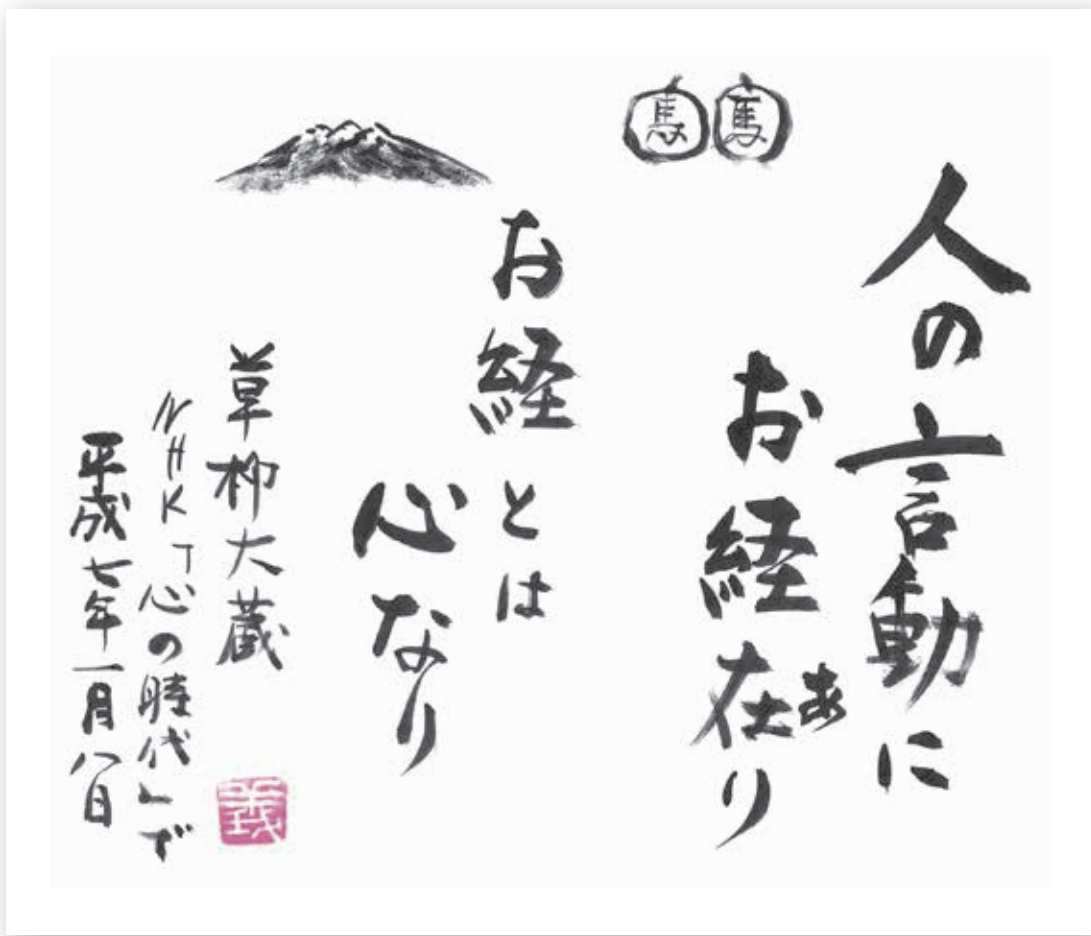 人の言動に
お経在り
あ
お経とは
心なり
草柳大蔵
NHK「心の時代」で
平成七年一月八日
義